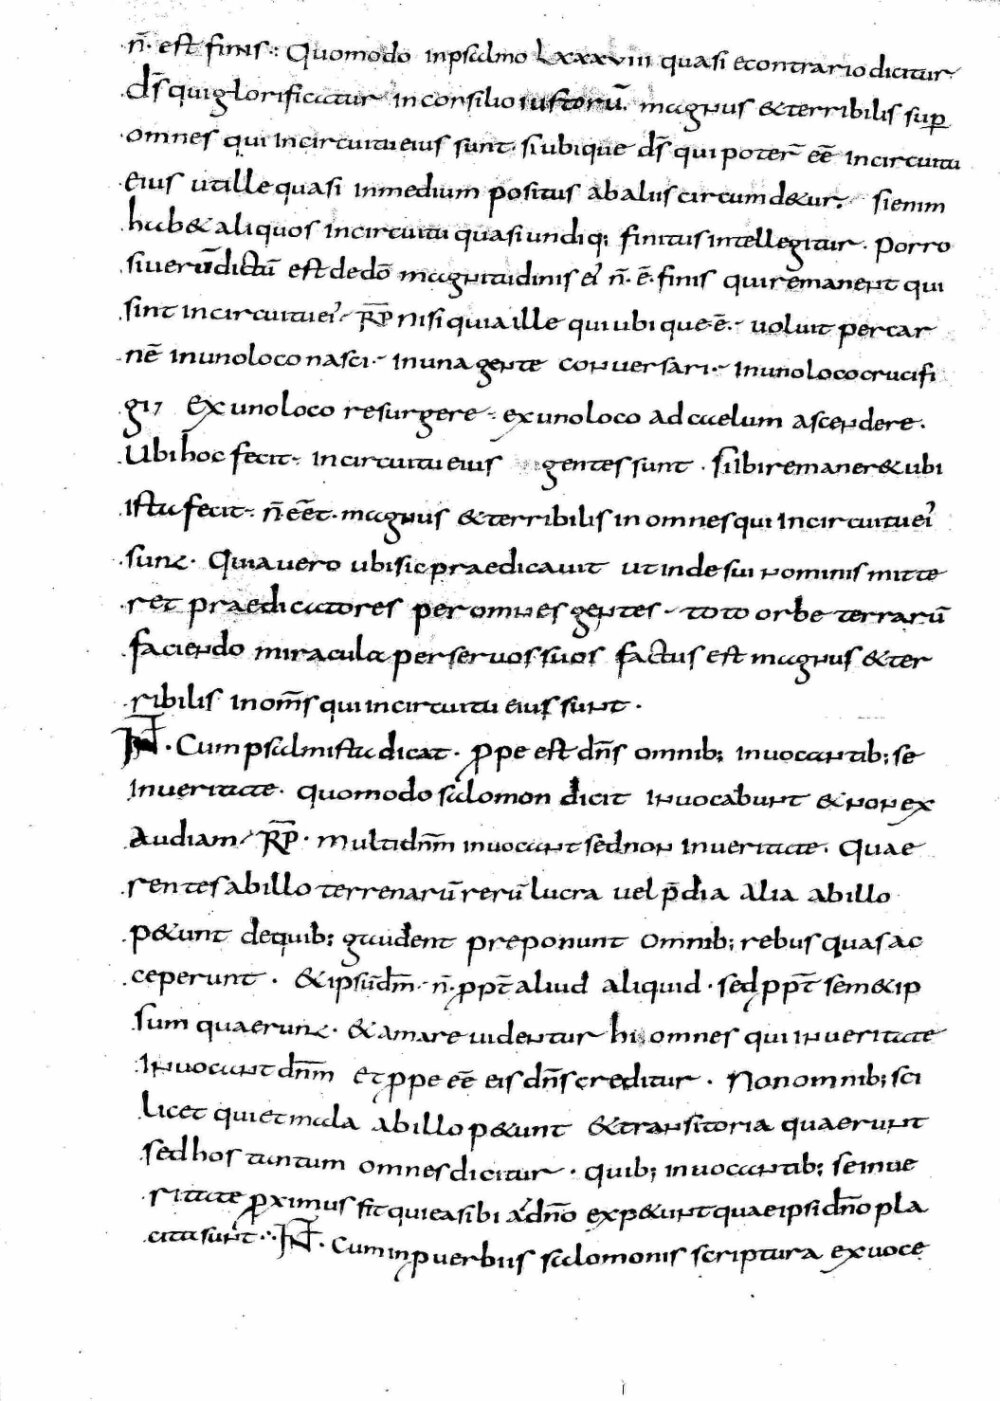 n̄. est finis:. Quomodo inpsalmo Lxxxviii quasi econtrario dicitur
d̄s quiglorificatur inconsilio iustorū. magnus &terribilis suꝑ
omnes qui incircuitueius sunt. siubique d̄s quipoter̄ eē incircuitu
eius utille quasi inmedium positus abaliis circumd&ur. sienim
hab& aliquos incircuitu quasiundiq; finitus intellegitur. porro
siuerū dictū est dedō magnitudinis ei' n̄. ē. finis quiremanent qui
sint incircuituei' R̄P nisi quiaille qui ubi que.ē. uoluit percar
nē inunoloco nasci. inuna gente conuersari. inunolococrucifi
gi, ex unoloco resurgere. exunoloco adcaelum ascendere.
Ubi hoc fecit. incircuitueius gentes sunt. siibiremaner& ubi
ista fecit. n̄ eēt. magnus &terribilis in omnesqui incircuituei'
sunt. Quiauero ubisicpraedicauit utinde sui nominis mitte
ret praedicatores per omnes gentes toto orbe terrarū
faciendo miracula perseruossuos factus est magnus &ter
ribilis inom̄s quiincircuitu eius sunt.
IN̄T. Cum psalmista dicat. ꝓpe est dn̄s omnib; inuocantib; se
inueritate. quomodo salomon dicit inuocabunt & non ex
Audiam R̄P. multidn̄m inuocant sednon inueritate. Quae
rentes abillo terrenarū rerū lucra uel p̄dia alia abillo
p&unt dequib; gaudent preponunt omnib; rebus quas ac
ceperunt. &ipsūdn̄m. n̄. ꝓpt̄ aliud aliquid. sed ꝓpt̄ sem&ip
sum quaerunt. &amare uidentur hi omnes qui inueritate
inuocant dn̄m et ꝓpe eē eis dn̄s creditur. Non omnib; sci
licet quiet mala abillo p&unt &transitoria quaerunt
sed hos tantum omnes dicitur. quib; inuocantib; se inue
ritate ꝓximus fit quieasibi addn̄o exp&unt quaeipsi dn̄o pla
cita sunt. IN̄T. Cum inꝓuerbiis salomonis scriptura exuoce